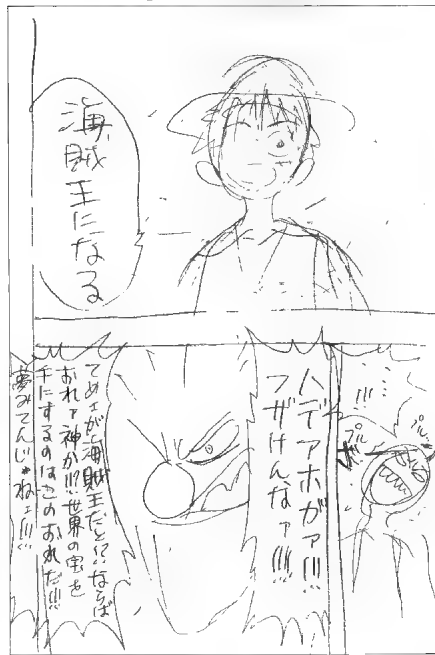 海賊王になる
ハデアホがァ!!!
フザけんなァ!!!!
てめェが海賊王だと!?ならば
おれァ神か!!?世界の宝を
手にするのはこのおれだ!!!
夢みてんじゃねェ!!!!